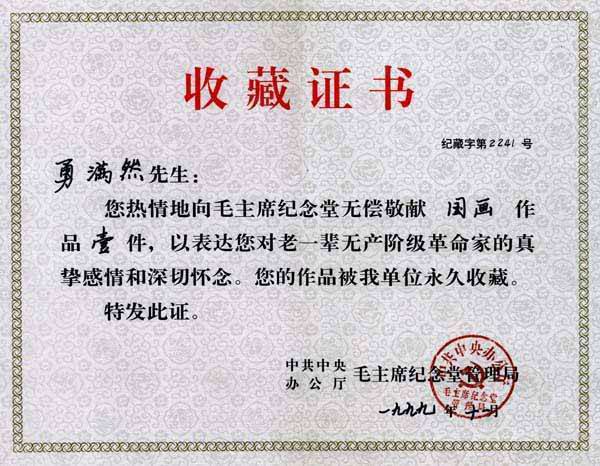 收藏证书
纪藏字第2241号
勇满然先生：
您热情地向毛主席纪念堂无偿敬献 国画 作
品 壹 件，以表达您对老一辈无产阶级革命家的真
挚感情和深切怀念。您的作品被我单位永久收藏。
特发此证。
中共中央
办公厅 毛主席纪念堂管理局
中共中央办公厅
毛主席纪念堂
管理局
一九九九年十一月